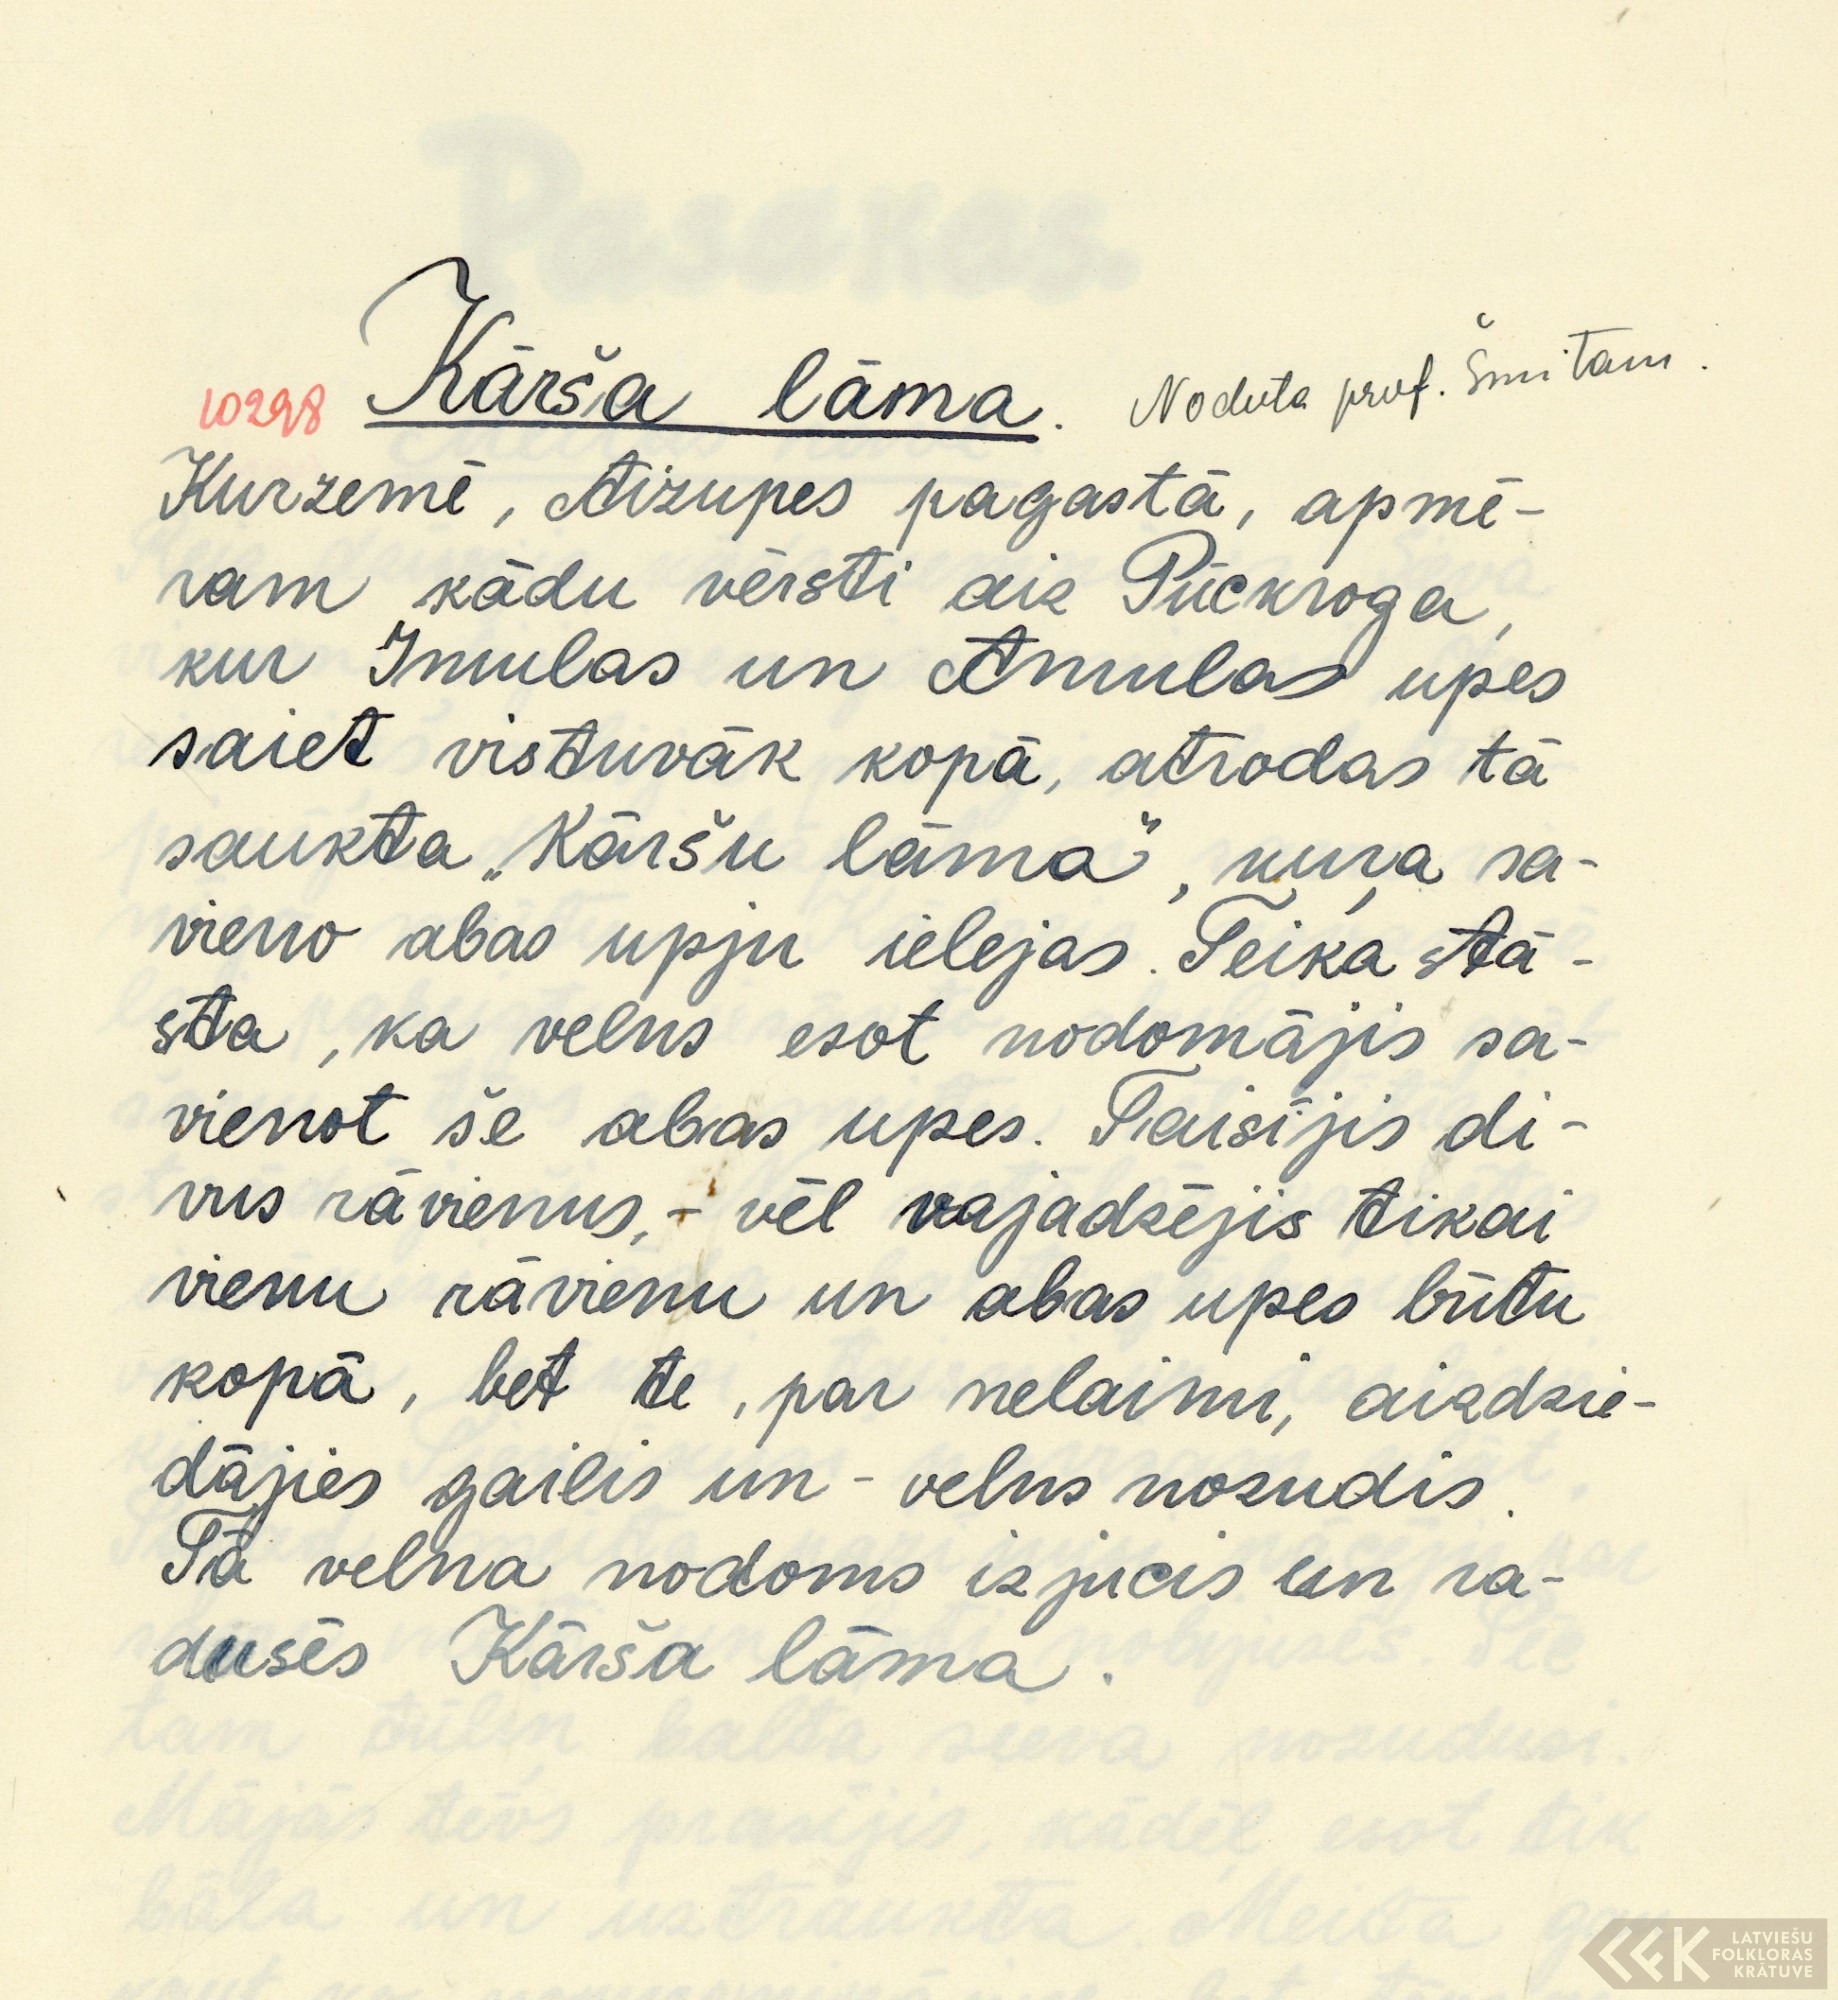 10298 Kārša lāma. Nodota prof. Šmitam.
Kurzemē, Aizupes pagastā, apmē-
ram kādu vērsti aiz Pūckroga,
kur Imulas un Amulas upes
saiet vistuvāk kopā, atrodas tā
saukta „Kāršu lāma", kuŗa sa-
vieno abas upju ielejas. Teika stā-
sta, ka velns esot nodomājis sa-
vienot še abas upes. Taisījis di-
vus rāvienus, - vēl vajadzējis tikai
vienu rāvienu un abas upes būtu
kopā, bet te, par nelaimi, aizdzie-
dājies gailis un - velns nozudis.
Tā velna nodoms izjucis un ra-
dusēs Kārša lāma.
LATVIEŠU
FOLKLORAS
KRĀTUVE